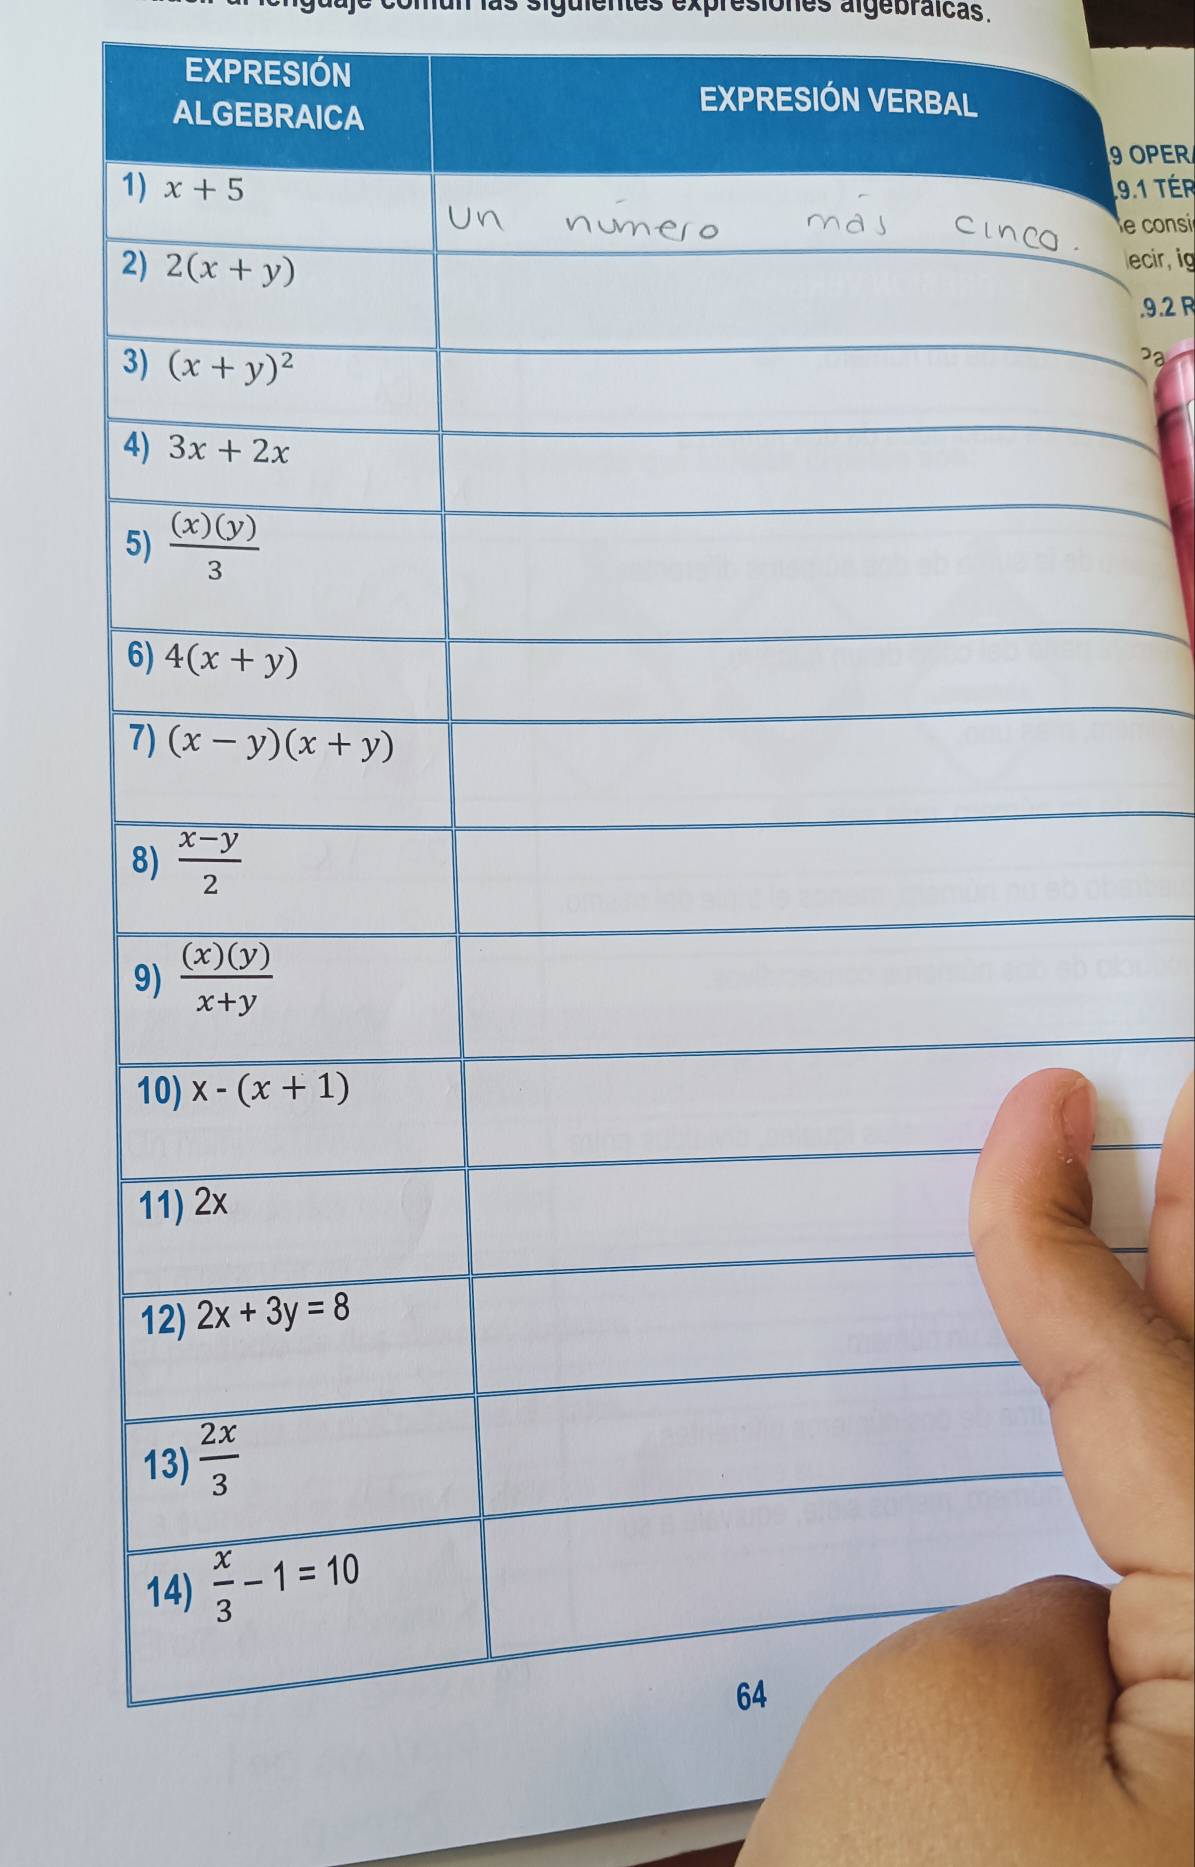 las siguientes expresiones algebraicas.
EXPRESIÓN ALGEBRAICA
EXPRESIÓN VERBAL
1) x + 5
un número más cinco.
2) 2(x + y)
3) (x + y)²
4) 3x + 2x
5) (x)(y)/3
6) 4(x + y)
7) (x − y)(x + y)
8) x−y/2
9) (x)(y)/x+y
10) x - (x + 1)
11) 2x
12) 2x + 3y = 8
13) 2x/3
14) x/3 − 1 = 10
64
9 OPER
.9.1 TÉR
e consi
ecir, ig
.9.2 R
Pa